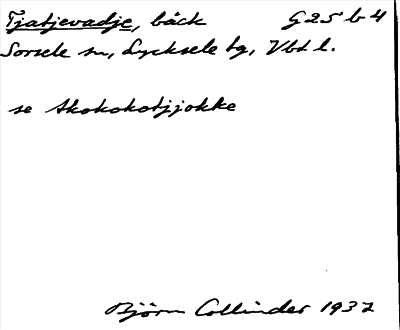 Tjatjevadje, bäck G 25 b 4
Sorsele sn, Lycksele tg, Vbt l.
se Akokokotjjokke
Björn Collinder 1937